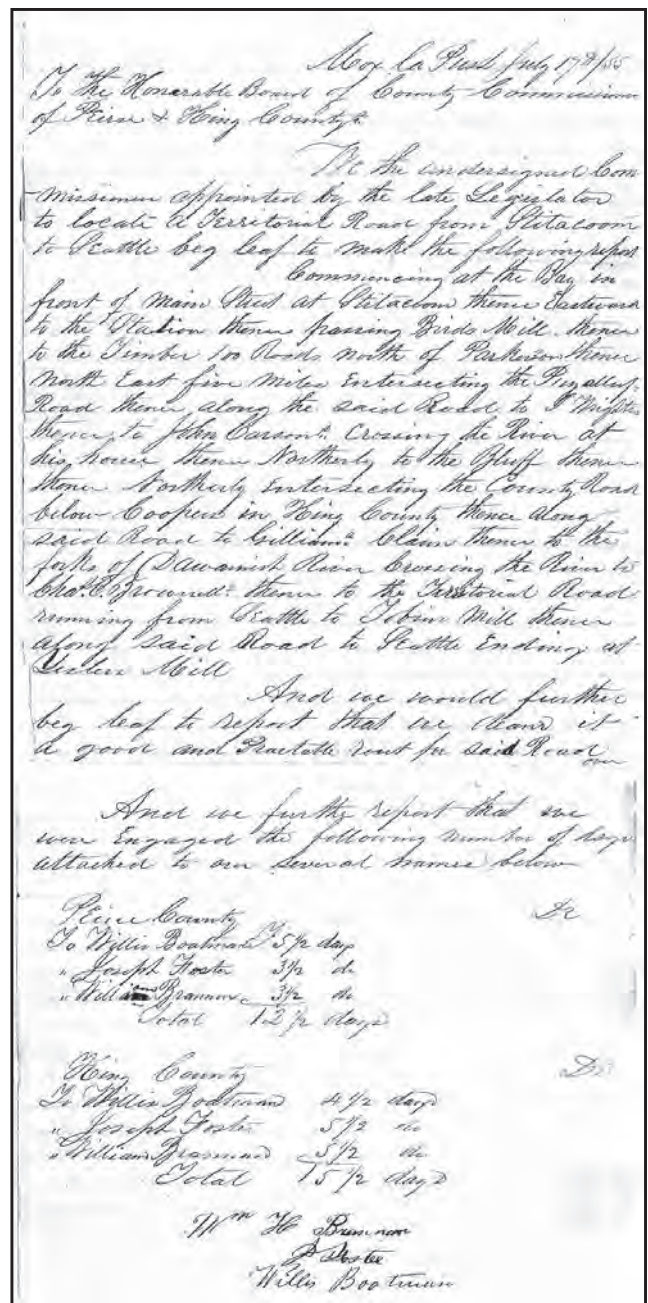 Mox la Push July 17th/55
To the Honorable Board of County Commissioners
of Peirse & King Countys
We the undersigned Com
missioner appointed by the late Legislator
to locate a Territorial Road from Stilacoom
to Seattle beg leaf to make the following report
Commencing at the Bay in
front of Main Street at Stilacoom thence Eastward
to the Station thence passing Birds Mill thence
to the Timber 100 Roads North of Parkerson thence
North East five Miles Entersecting the Puyallup
Road thence along the said Road to J Wrights
thence to John Carsons Crossing the River at
his house thence Northerly to the Bluff thence
thence Northerly Entersecting the County Road
below Coopers in King County thence along
said Road to Gilliams Claim thence to the
forks of Dawamish River Crossing the River to
Chas. E. Brownells thence to the Territorial Road
running from Seattle to Tobin Mill thence
along said Road to Seattle Ending at
Mill
And we would further
beg leaf to report that we deam it
a good and Practable rout for said Road
over
And we further report that we
were Engaged the following number of days
attached to our several names below
Peirce County Dr
To Willis Boatman 5 1/2 days
" Joseph Foster 3 1/2 do
" William Brannan 3 1/2 do
Total 12 1/2 days
King County Dr
To Willis Boatman 4 1/2 days
" Joseph Foster 5 1/2 do
" William Brannan 5 1/2 do
Total 15 1/2 days
Wm H Brannan
J Foster
Willis Boatman